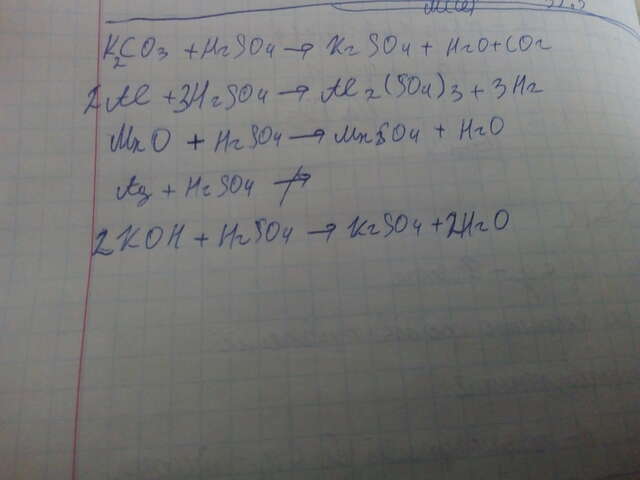 K₂CO₃ + H₂SO₄ → K₂SO₄ + H₂O + CO₂
2Al + 3H₂SO₄ → Al₂(SO₄)₃ + 3H₂
MnO + H₂SO₄ → MnSO₄ + H₂O
Ag + H₂SO₄ ↛
2KOH + H₂SO₄ → K₂SO₄ + 2H₂O